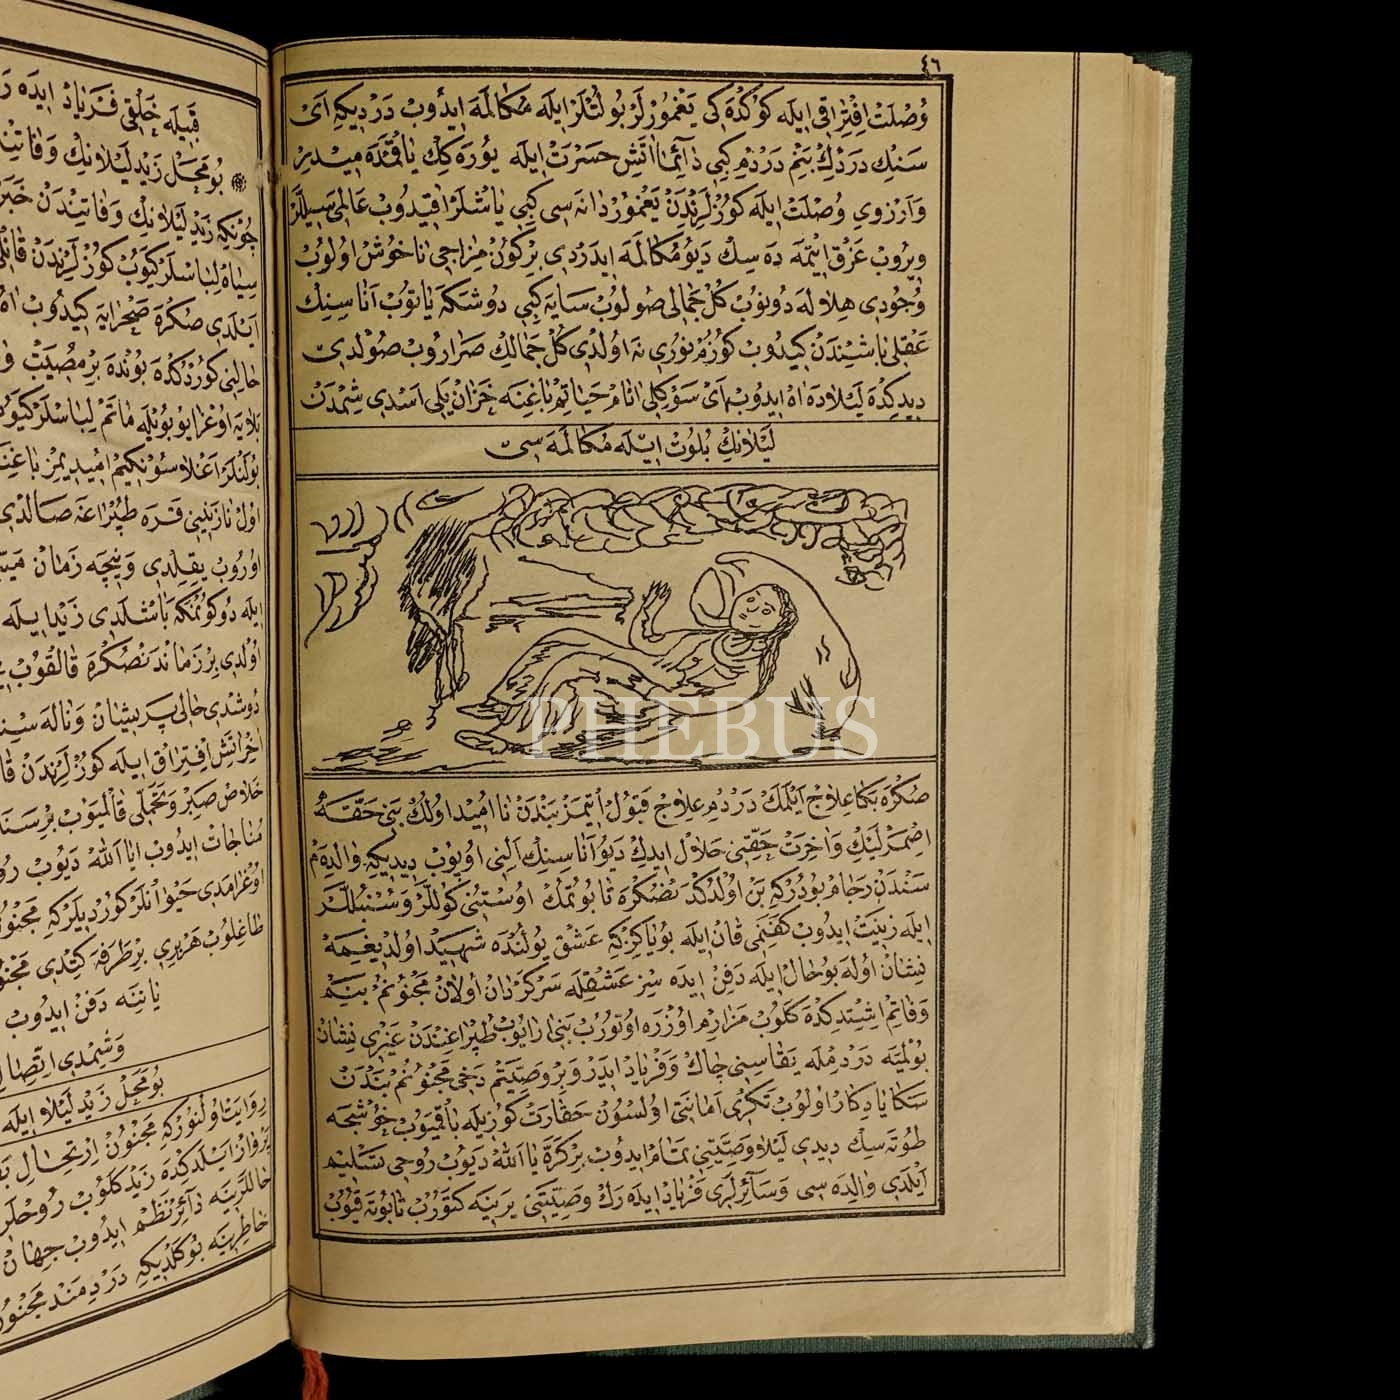 ٤٦
وُصْلَتْ افْتِرَاقِی ایله كُوكْدَه كِی یَغْمُورْلَرْ بُولُتْلَرْ ایله مُكَالَمَه ایدُوبْ دَرْدِیكِه ای
سَنِكْ دَرْدِكْ بَنِمْ دَرْدُمْ كِبِی دَائِمَا آتَشِ حَسْرَتْ ایله یُورَه كِكْ یَاقْمَدَه مِیدِرْ
وَارْزُویِ وُصْلَتْ ایله كُوزْلَرِنْدَنْ یَغْمُورْ دَانَه سِی كِبِی یَاشْلَرْ اقِیدُوبْ عَالَمِی سَیْلَه
وِیرُوبْ غَرْقْ ایْتْمَه دَه سِكْ دَیُو مُكَالَمَه ایدَرْدِی بِرْكُونْ مِزَاجِی نَاخُوشْ اولُوبْ
وُجُودِی هِلَالَه دُونُوبْ كُلْ جَمَالِی صُولُوبْ سَایَه كِبِی دُوشَكَه یَاتُوبْ آنَاسِنِكْ
عَقْلِی بَاشِنْدَنْ كِیدُوبْ كُوزُمْ نُورِی نَه اُولْدِی كُلْ جَمَالِكْ صَرَارُوبْ صُولْدِی
دِیدِكْدَه لَیْلَادَه آهْ ایدُوبْ ایْ سَوْكِلِی آنَامْ حَیَاتِمْ بَاغِنَه خَزَانْ یَلِی اسْدِی شِمْدَنْ
لَیْلَانِكْ بُلُوتْ ایله مُكَالَمَه سِی
صُكْرَه بَكَا عِلَاجْ ایْلَمَكْ دَرْدُمْ عِلَاجْ قَبُولْ اِیتْمَزْ بَنْدَنْ نَا اُمِیدْ اولُكْ بَنِی حَقَّه
اصْمَرْلَیْكْ وَاخِرَتْ حَقِّنِی حَلَالْ ایدِكْ دَیُو آنَاسِنِكْ الِنِی اوپُوبْ دِیدِیكِه وَالِدَه مْ
سَنْدَنْ رَجَامْ بُودُرْكِه بَنْ اُولْدُكْدَنْصُكْرَه تَابُوتُمُكْ اوُسْتُنِی كُوللَرْ وَسُنْبُللَرْ
ایله زِینَتْ ایدُوبْ كَفَنِمِی قَانْ ایله بُویَا كِزْكِه عَشْقْ یُولُنْدَه شَهِیدْ اولْدِیغِمَه
نِشَانْ اُولَه بُو حَالْ ایله دَفْنْ ایدَه سِزْ عَشْقِلَه سَرْكَرْدَانْ اُولَانْ مَجْنُونُمْ بَنِمْ
وَفَاتِمْ اشِیْتدِكْدَه كَلُوبْ مَزَارِمْ اُوزْرَه اُوتُورُبْ بَنِی ارَایُوبْ طُپْرَاغِمْدَنْ غَیْرِی نِشَانْ
بُولْمِیَه دَرْدِمْلَه یَقَاسِنِی چَاكْ وَفَرْیَادْ ایدَرْ وَبِرْ وَصِیَّتِمْ دَخِی مَجْنُونُمْ بَنْدَنْ
سَكَا یَادِكَارْ اولُوبْ تَكْرِی امَانَتِی اُولسُونْ حَقَارَتْ كُوزِیلَه بَاقْمِیُوبْ خُوشْجَه
طُوتَه سِكْ دِیدِی لَیْلَا وَصِیَّتِنِی تَمَامْ ایدُوبْ بِرْكَرَّه یَا اَللهْ دَیُوبْ رُوحِی تَسْلِیمْ
اَیْلَدِی وَالِدَه سِی وَسَائِرْلَرِی فَرْیَادْ ایدَه رَكْ وَصِیَّتِنِی یِرِینَه كَتُورُبْ تَابُوتَه قُیُوبْ
PHEBUS
قَبِیلَه خَلْقِی فَرْیَادْ ایدَه
بُو مَحَلْ زَیْدْ لَیْلَانِكْ وَفَاتِنْ
چُونْكِه زَیْدْ لَیْلَانِكْ وَفَاتِنْدَنْ خَبَرْ
سِیَاهْ لِبَاسْلَرْ كِیُوبْ كُوزْلَرِنْدَنْ قَانْلِی
اَیْلَدِی صُكْرَه صَحْرَایَه كِیدُوبْ
حَالِنِی كُورْدُكْدَه بُونْدَه بِرْ مُصِیبَتْ
بَلَایَه اُوغْرَایُوبْ بُویْلَه مَاتَمْ لِبَاسْلَرْ كِیُوبْ
بُولَنْلَرْ اَغْلَاسُونْكِیمْ امِیدِیمِزْ بَاغِنَه
اُولْ نَازَنِینِی قَرَه طُپْرَاغَه صَالْدِی
اُورُوبْ یِقِلْدِی وَنِیچَه زَمَانْ
ایله دُوكُونْمَكَه بَاشْلَدِی زَیْدْ ایله
اُولْدِی بِرْ زَمَانْدَنْصُكْرَه قَالْقُوبْ
دُوشْدِی حَالِی پَرِیشَانْ وَنَالَه
اخِرْ آتَشِ افْتِرَاقْ ایله كُوزْلَرِنْدَنْ
خَلَاصْ صَبِرْ وَتَحَمُّلِی قَالْمِیُوبْ
مُنَاجَاتْ ایدُوبْ ایَا اَللهْ دَیُوبْ
اوُغْرَامَدِی حَیْوَانْلَرْ كُورْدِیلَرْكِه مَجْنُونْ
طَاغِلُوبْ هَرْبِرِی بِرْ طَرَفَه كِتْدِی
یَانِنَه دَفْنْ ایدُوبْ
وَشِمْدِی
بُو مَحَلْ زَیْدْ لَیْلَا ایله
رِوَایَتْ اُولُنُورْكِه مَجْنُونْ اِرْتِحَالِ
پَرْوَازْ ایْلَدِكْدَه زَیْدْ كَلُوبْ رُوحْلَرِ
حَاللَرِینَه دَائِرْ نَظْمْ ایدُوبْ جِهَانْ
خَاطِرِینَه بُو كَلْدِیكِه دَرْدِمَنْدْ مَجْنُونْ